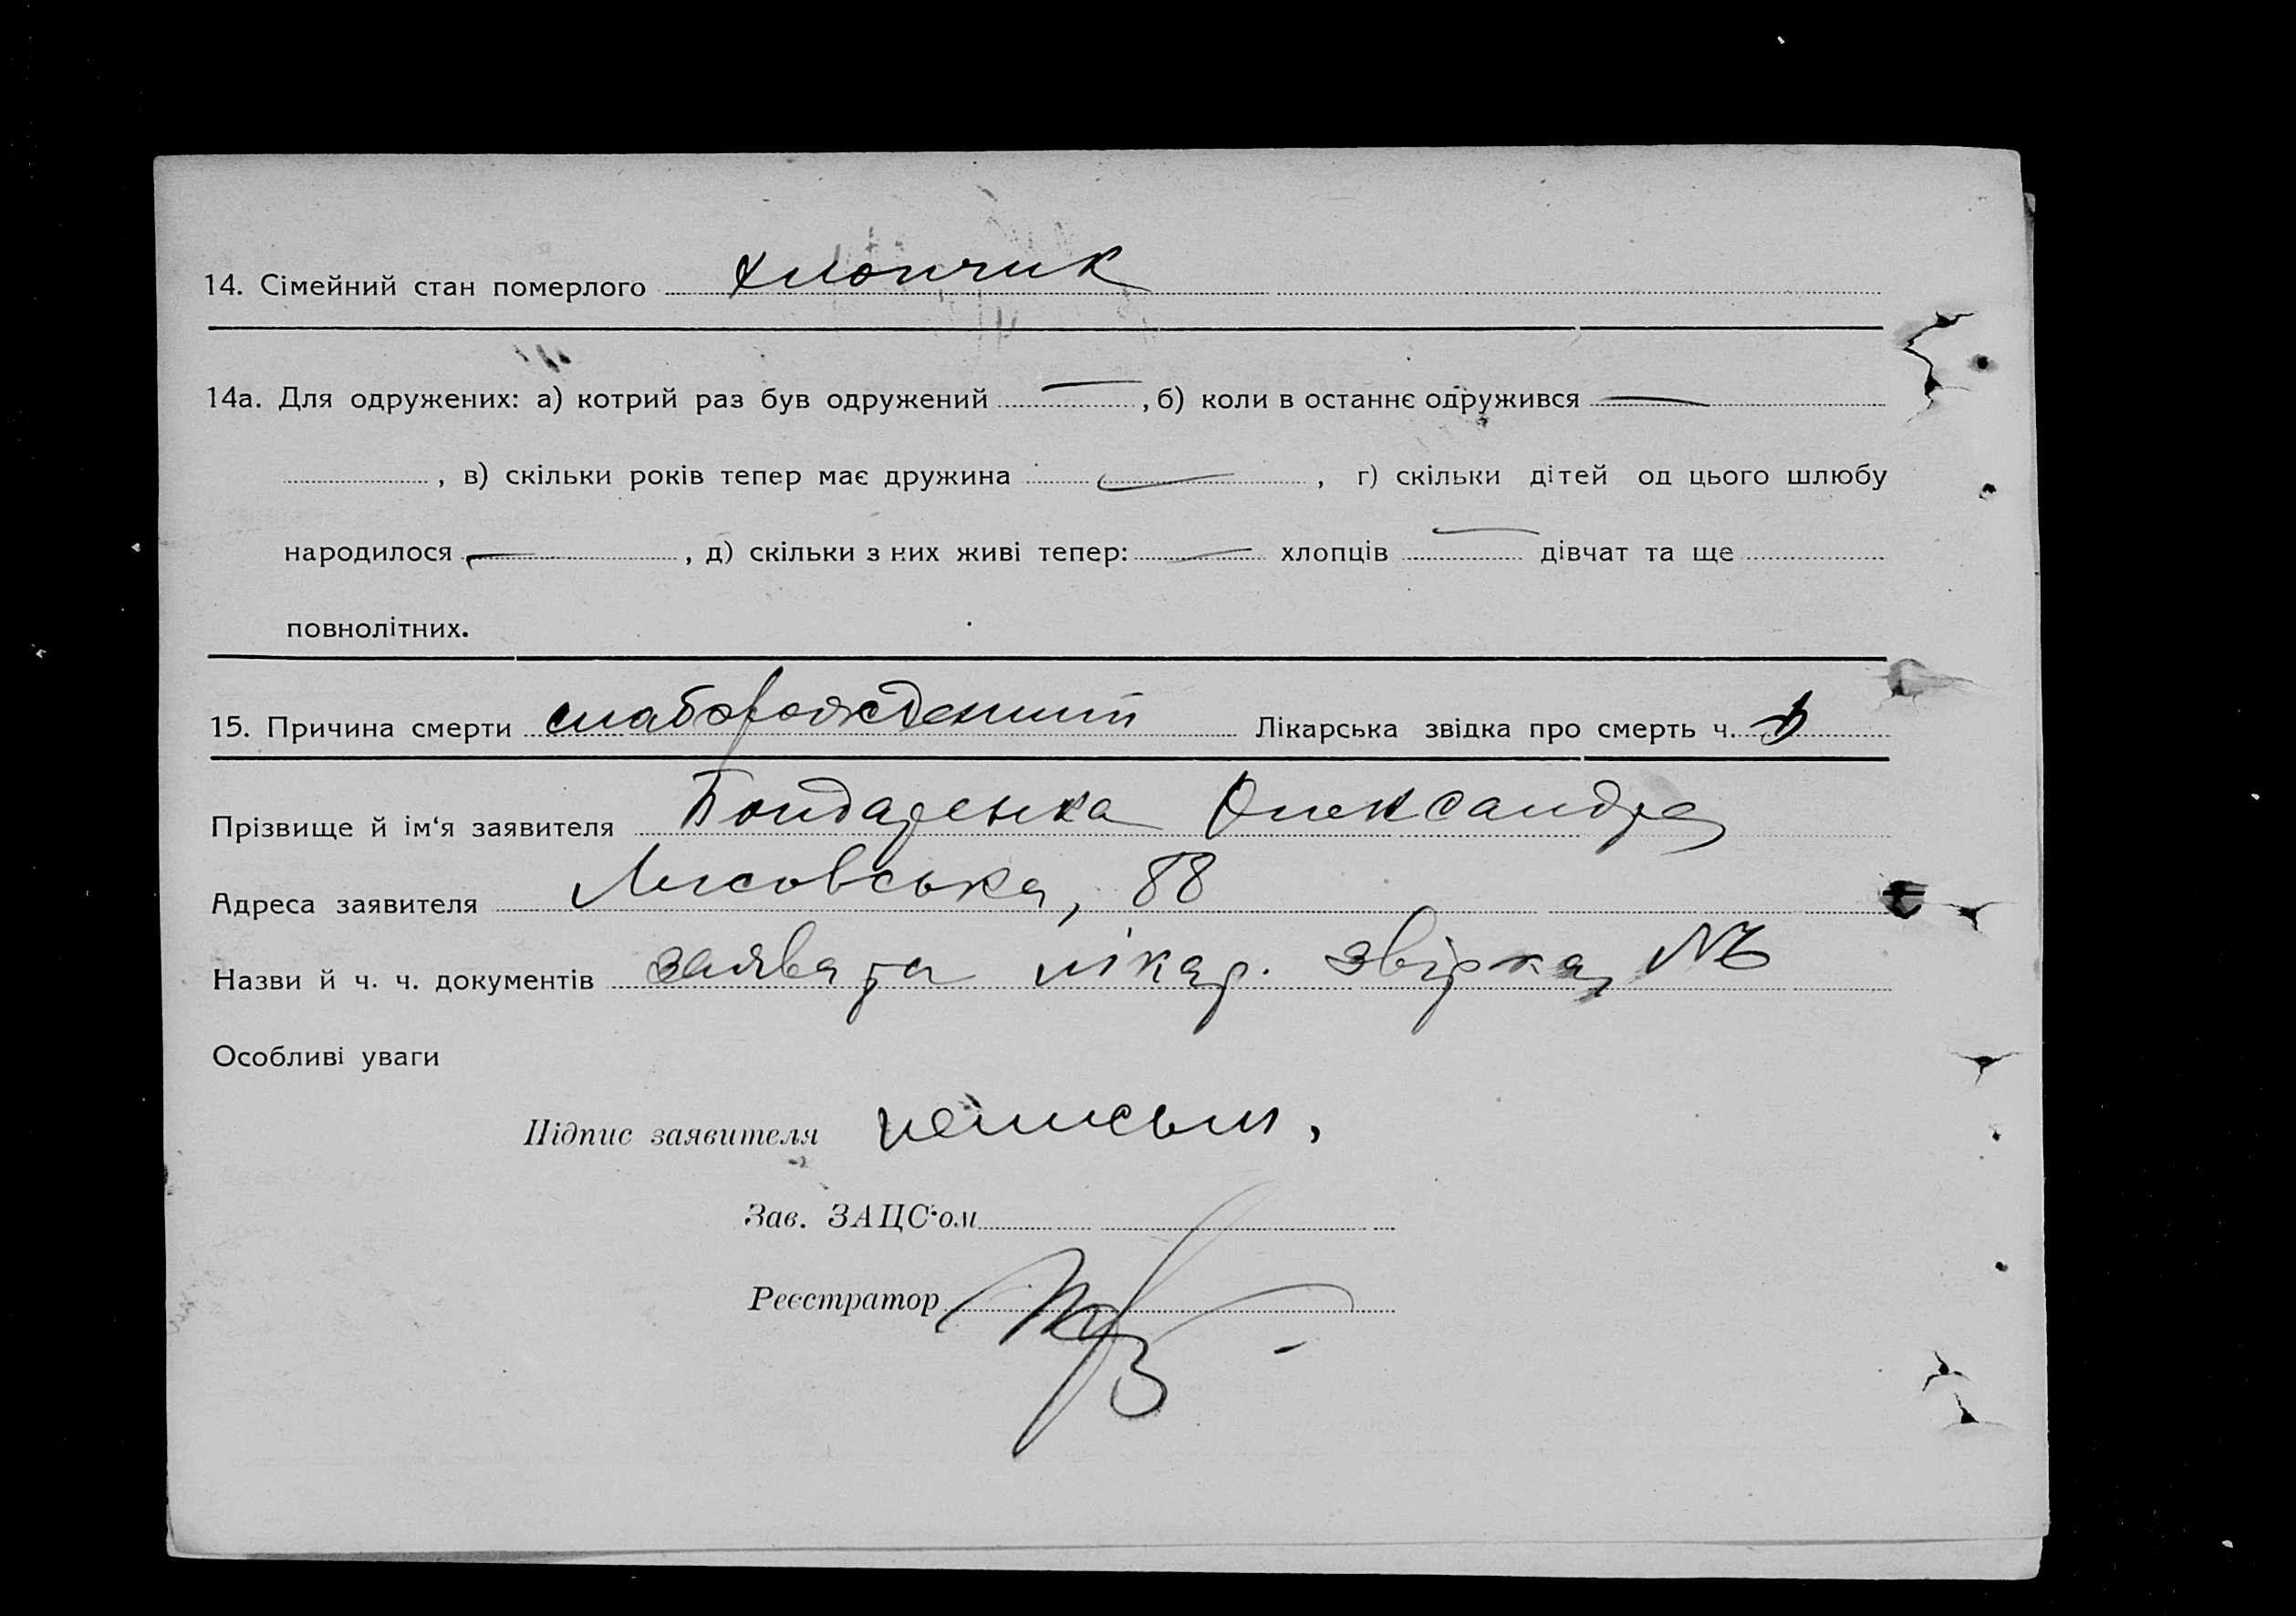 14. Сімейний стан померлого хлопчик
14а. Для одружених: а) котрий раз був одружений —, б) коли в останнє одружився —
, в) скільки років тепер має дружина —, г) скільки дітей од цього шлюбу
народилося —, д) скільки з них живі тепер: — хлопців — дівчат та ще
повнолітних.
15. Причина смерти слаборожденний Лікарська звідка про смерть ч.
Прізвище й ім‘я заявителя Бондаренка Олександра
Адреса заявителя Лисовська, 88
Назви й ч. ч. документів заява та лікар. звідка №
Особливі уваги
Підпис заявителя неписьм.
Зав. ЗАЦС‘ом
Реєстратор